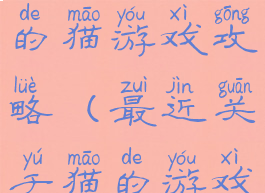 de māo yóu xì gōng
的猫游戏攻
lüè zuì jìn guān
略（最近关
yú māo de yóu xì
于猫的游戏